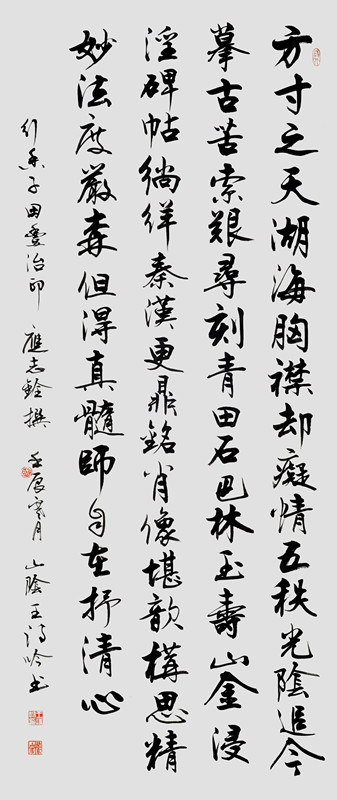 方寸之天湖海胸襟却癡情五秩光陰追今
摹古苦索艱尋刻青田石巴林玉壽山金浸
淫碑帖徜徉秦漢更鼎銘肖像堪歆構思精
妙法度嚴森但得真髓師自在抒清心
行香子 田 治印 應志銓撰 壬辰寒月 山陰王 吟书